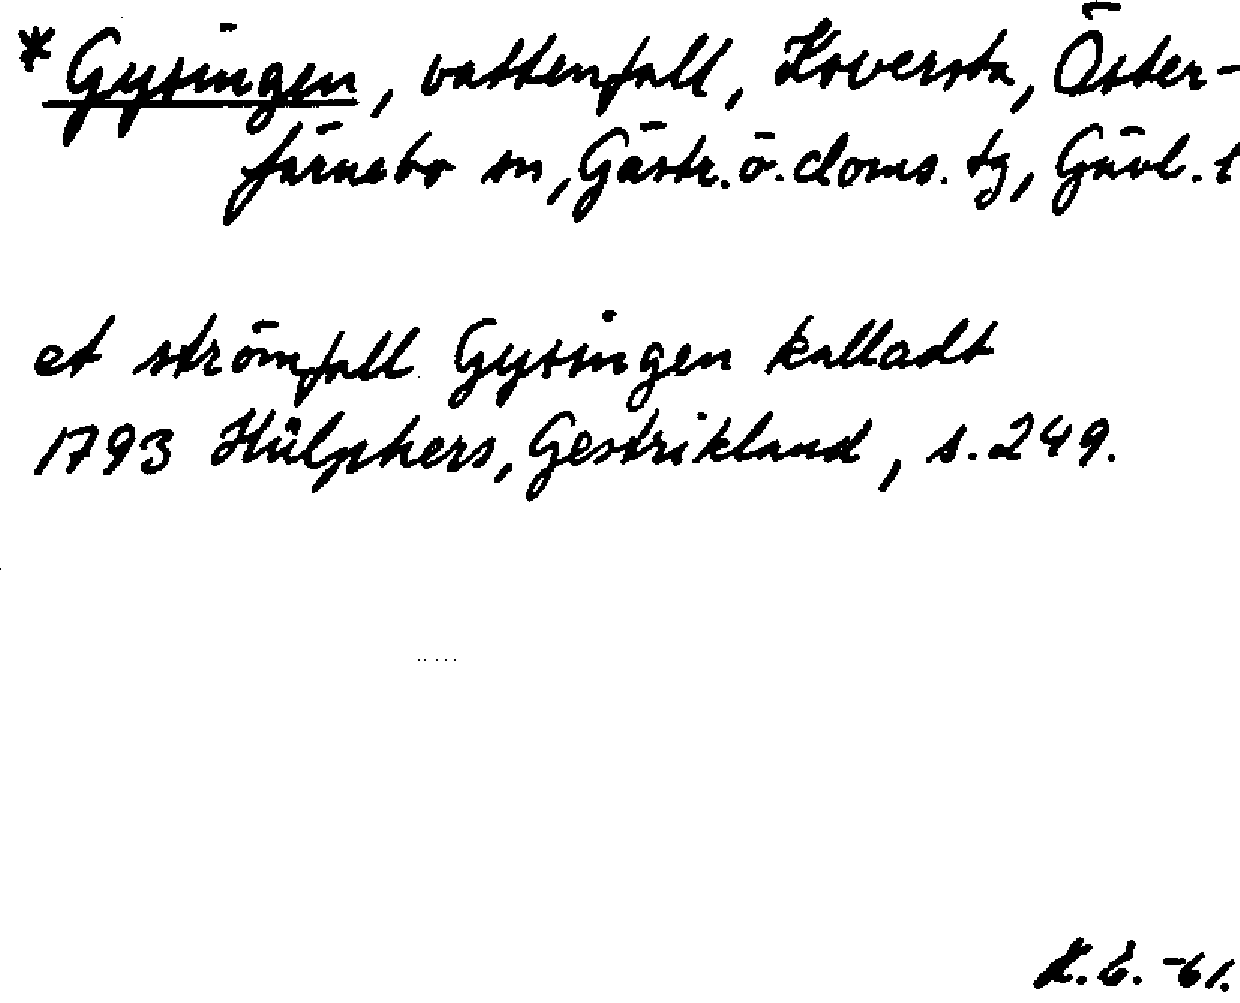 * Gysingen, vattenfall, Koversta, Öster-
färnebo sn, Gästr. ö. doms. tg, Gävl. l
et strömfall Gysingen kalladt
1793 Hülphers, Gestrikland, s. 249.
K. E. -61.